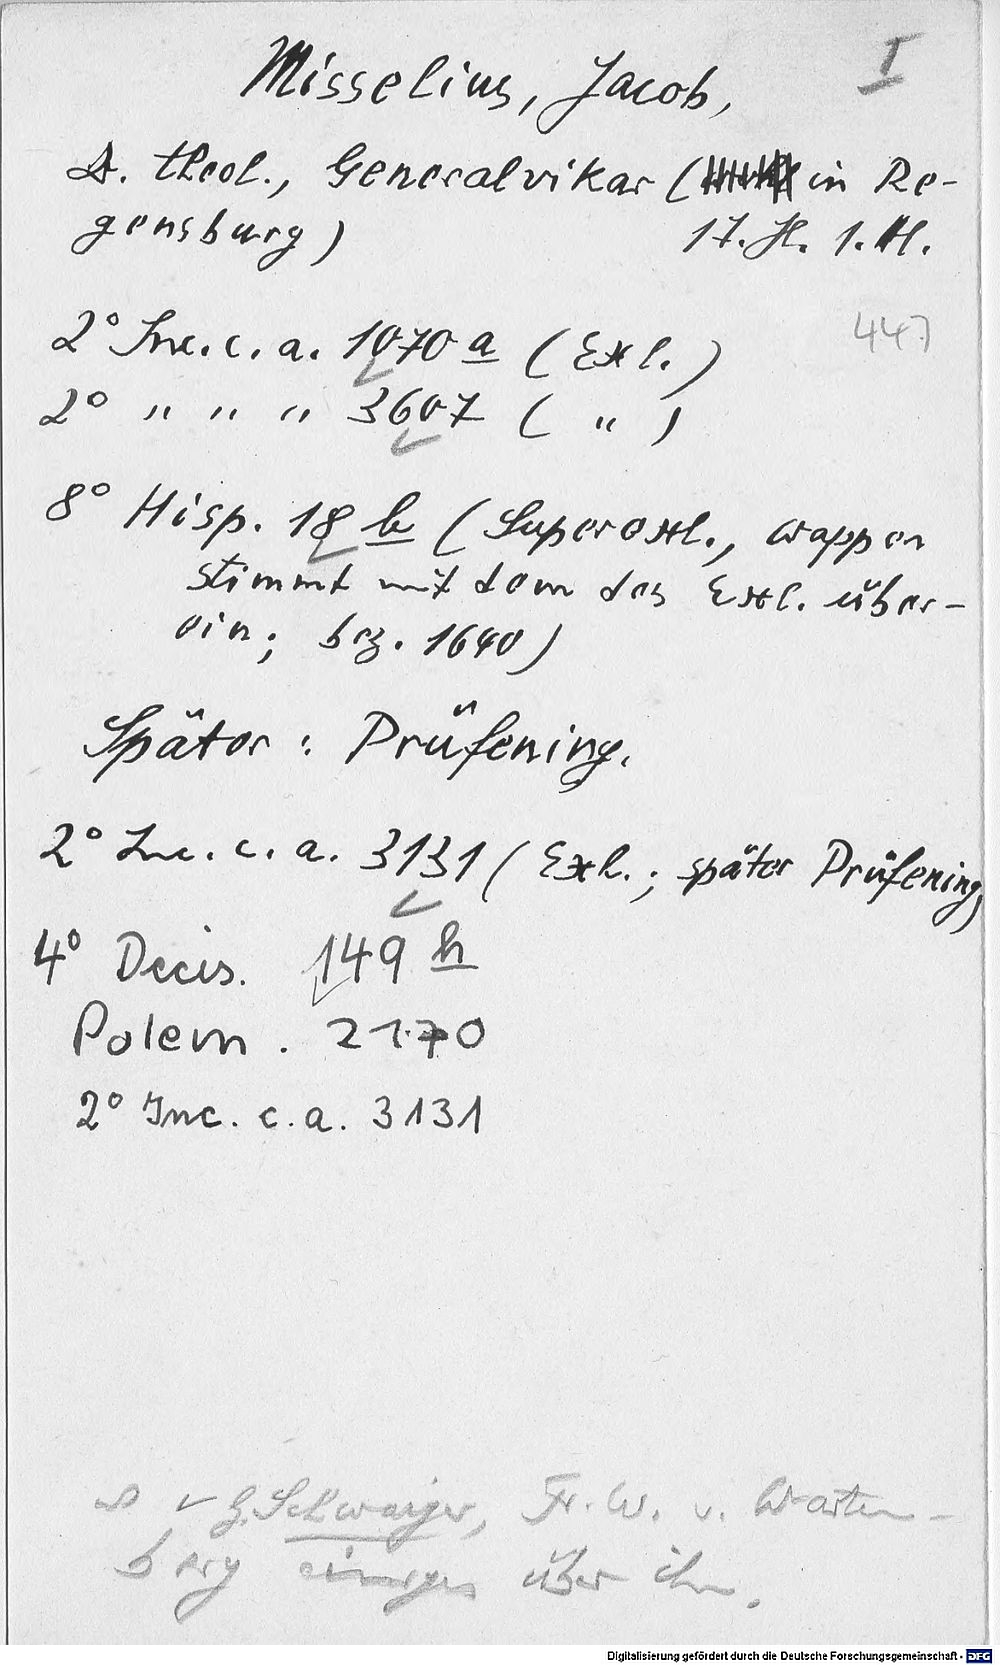 I
Misselius, Jacob,
D. theol., Generalvikar ( in Re-
gensburg) 17. Jh. 1. H.
2° Inc. c. a. 1070 a (Exl.)
447
2° " " " 3607 ( " )
8° Hisp. 18 b (Superexl., Wappen
stimmt mit dem des Exl. über-
ein; bez. 1640)
Später: Prüfening.
2° Inc. c. a. 3131 (Exl.; später Prüfening)
4° Decis. 149 h
Polem. 2170
2° Inc. c. a. 3131
G. Schwaiger, Fr. W. v. Warten-
berg einiges über ihn.
Digitalisierung gefördert durch die Deutsche Forschungsgemeinschaft - DFG